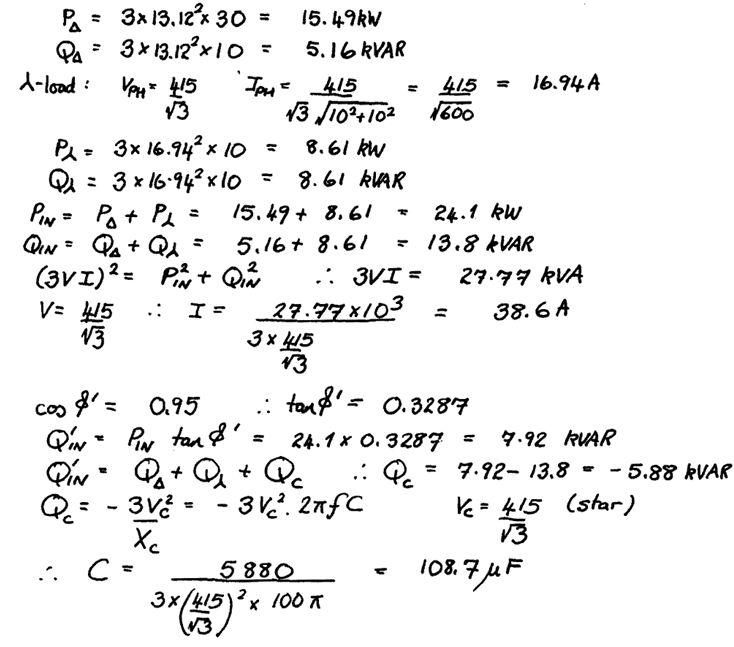 P_Δ = 3×13.12²×30 = 15.49kW
Q_Δ = 3×13.12²×10 = 5.16 kVAR
⅄-load: V_PH = 415/√3 I_PH = 415/(√3 √(10²+10²)) = 415/√600 = 16.94A
P_⅄ = 3×16.94²×10 = 8.61 kW
Q_⅄ = 3×16.94²×10 = 8.61 kVAR
P_IN = P_Δ + P_⅄ = 15.49 + 8.61 = 24.1 kW
Q_IN = Q_Δ + Q_⅄ = 5.16 + 8.61 = 13.8 kVAR
(3VI)² = P_IN² + Q_IN² ∴ 3VI = 27.77 kVA
V = 415/√3 ∴ I = 27.77×10³/(3×415/√3) = 38.6A
cos φ' = 0.95 ∴ tan φ' = 0.3287
Q'_IN = P_IN tan φ' = 24.1 × 0.3287 = 7.92 kVAR
Q'_IN = Q_Δ + Q_⅄ + Q_c ∴ Q_c = 7.92 - 13.8 = -5.88 kVAR
Q_c = -3V_c²/X_c = -3V_c². 2πfC V_c = 415/√3 (star)
∴ C = 5880/(3×(415/√3)² × 100π) = 108.7 μF